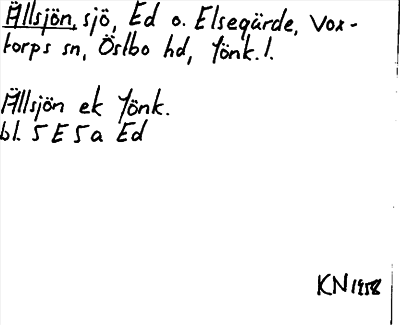 Ällsjön, sjö, Ed o. Elsegärde, Vox-
torps sn, Östbo hd, Jönk. l.
Ällsjön ek Jönk.
bl. 5 E 5 a Ed
KN 1958